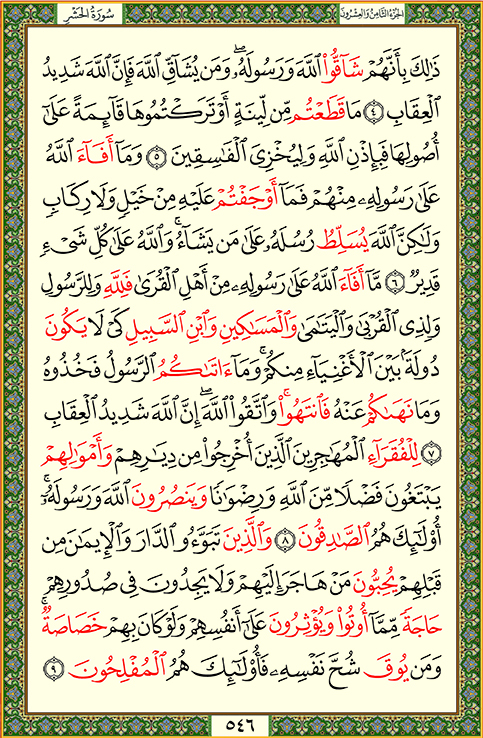 سُورَةُ الحَشْرِ
الجُزْءُ الثَّامِنُ وَالعِشْرُونَ
ذَٰلِكَ بِأَنَّهُمْ شَاقُّوا۟ ٱللَّهَ وَرَسُولَهُۥ ۖ وَمَن يُشَاقِّ ٱللَّهَ فَإِنَّ ٱللَّهَ شَدِيدُ
ٱلْعِقَابِ ٤ مَا قَطَعْتُم مِّن لِّينَةٍ أَوْ تَرَكْتُمُوهَا قَآئِمَةً عَلَىٰٓ
أُصُولِهَا فَبِإِذْنِ ٱللَّهِ وَلِيُخْزِىَ ٱلْفَـٰسِقِينَ ٥ وَمَآ أَفَآءَ ٱللَّهُ
عَلَىٰ رَسُولِهِۦ مِنْهُمْ فَمَآ أَوْجَفْتُمْ عَلَيْهِ مِنْ خَيْلٍ وَلَا رِكَابٍ
وَلَـٰكِنَّ ٱللَّهَ يُسَلِّطُ رُسُلَهُۥ عَلَىٰ مَن يَشَآءُ ۚ وَٱللَّهُ عَلَىٰ كُلِّ شَىْءٍ
قَدِيرٌ ٦ مَّآ أَفَآءَ ٱللَّهُ عَلَىٰ رَسُولِهِۦ مِنْ أَهْلِ ٱلْقُرَىٰ فَلِلَّهِ وَلِلرَّسُولِ
وَلِذِى ٱلْقُرْبَىٰ وَٱلْيَتَـٰمَىٰ وَٱلْمَسَـٰكِينِ وَٱبْنِ ٱلسَّبِيلِ كَىْ لَا يَكُونَ
دُولَةًۢ بَيْنَ ٱلْأَغْنِيَآءِ مِنكُمْ ۚ وَمَآ ءَاتَىٰكُمُ ٱلرَّسُولُ فَخُذُوهُ
وَمَا نَهَىٰكُمْ عَنْهُ فَٱنتَهُوا۟ ۚ وَٱتَّقُوا۟ ٱللَّهَ ۖ إِنَّ ٱللَّهَ شَدِيدُ ٱلْعِقَابِ
٧ لِلْفُقَرَآءِ ٱلْمُهَـٰجِرِينَ ٱلَّذِينَ أُخْرِجُوا۟ مِن دِيَـٰرِهِمْ وَأَمْوَٰلِهِمْ
يَبْتَغُونَ فَضْلًا مِّنَ ٱللَّهِ وَرِضْوَٰنًا وَيَنصُرُونَ ٱللَّهَ وَرَسُولَهُۥٓ ۚ
أُو۟لَـٰٓئِكَ هُمُ ٱلصَّـٰدِقُونَ ٨ وَٱلَّذِينَ تَبَوَّءُو ٱلدَّارَ وَٱلْإِيمَـٰنَ مِن
قَبْلِهِمْ يُحِبُّونَ مَنْ هَاجَرَ إِلَيْهِمْ وَلَا يَجِدُونَ فِى صُدُورِهِمْ
حَاجَةً مِّمَّآ أُوتُوا۟ وَيُؤْثِرُونَ عَلَىٰٓ أَنفُسِهِمْ وَلَوْ كَانَ بِهِمْ خَصَاصَةٌ ۚ
وَمَن يُوقَ شُحَّ نَفْسِهِۦ فَأُو۟لَـٰٓئِكَ هُمُ ٱلْمُفْلِحُونَ ٩
٥٤٦